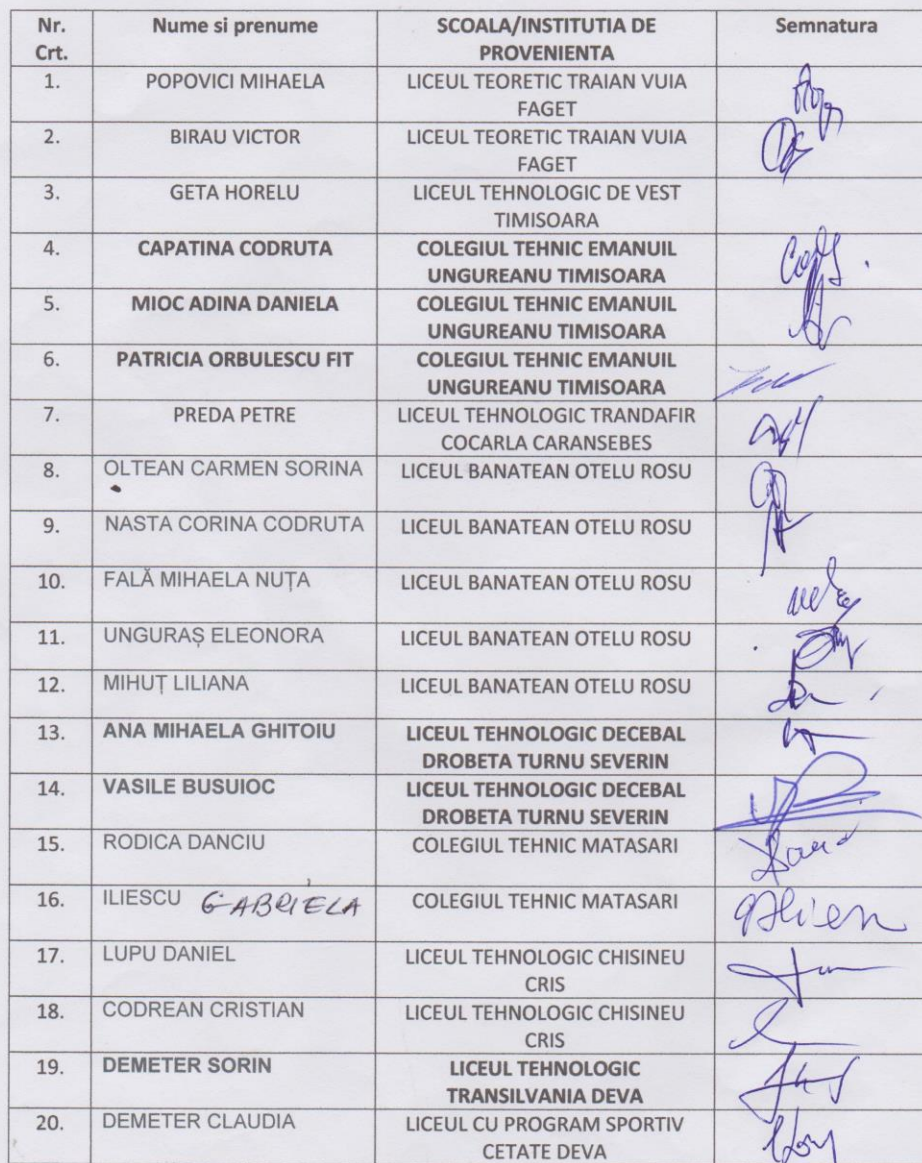 Nr. Crt. Nume si prenume SCOALA/INSTITUTIA DE PROVENIENTA Semnatura
1. POPOVICI MIHAELA LICEUL TEORETIC TRAIAN VUIA FAGET
2. BIRAU VICTOR LICEUL TEORETIC TRAIAN VUIA FAGET
3. GETA HORELU LICEUL TEHNOLOGIC DE VEST TIMISOARA
4. CAPATINA CODRUTA COLEGIUL TEHNIC EMANUIL UNGUREANU TIMISOARA
5. MIOC ADINA DANIELA COLEGIUL TEHNIC EMANUIL UNGUREANU TIMISOARA
6. PATRICIA ORBULESCU FIT COLEGIUL TEHNIC EMANUIL UNGUREANU TIMISOARA
7. PREDA PETRE LICEUL TEHNOLOGIC TRANDAFIR COCARLA CARANSEBES
8. OLTEAN CARMEN SORINA LICEUL BANATEAN OTELU ROSU
9. NASTA CORINA CODRUTA LICEUL BANATEAN OTELU ROSU
10. FALĂ MIHAELA NUȚA LICEUL BANATEAN OTELU ROSU
11. UNGURAȘ ELEONORA LICEUL BANATEAN OTELU ROSU
12. MIHUȚ LILIANA LICEUL BANATEAN OTELU ROSU
13. ANA MIHAELA GHITOIU LICEUL TEHNOLOGIC DECEBAL DROBETA TURNU SEVERIN
14. VASILE BUSUIOC LICEUL TEHNOLOGIC DECEBAL DROBETA TURNU SEVERIN
15. RODICA DANCIU COLEGIUL TEHNIC MATASARI
16. ILIESCU GABRIELA COLEGIUL TEHNIC MATASARI
17. LUPU DANIEL LICEUL TEHNOLOGIC CHISINEU CRIS
18. CODREAN CRISTIAN LICEUL TEHNOLOGIC CHISINEU CRIS
19. DEMETER SORIN LICEUL TEHNOLOGIC TRANSILVANIA DEVA
20. DEMETER CLAUDIA LICEUL CU PROGRAM SPORTIV CETATE DEVA